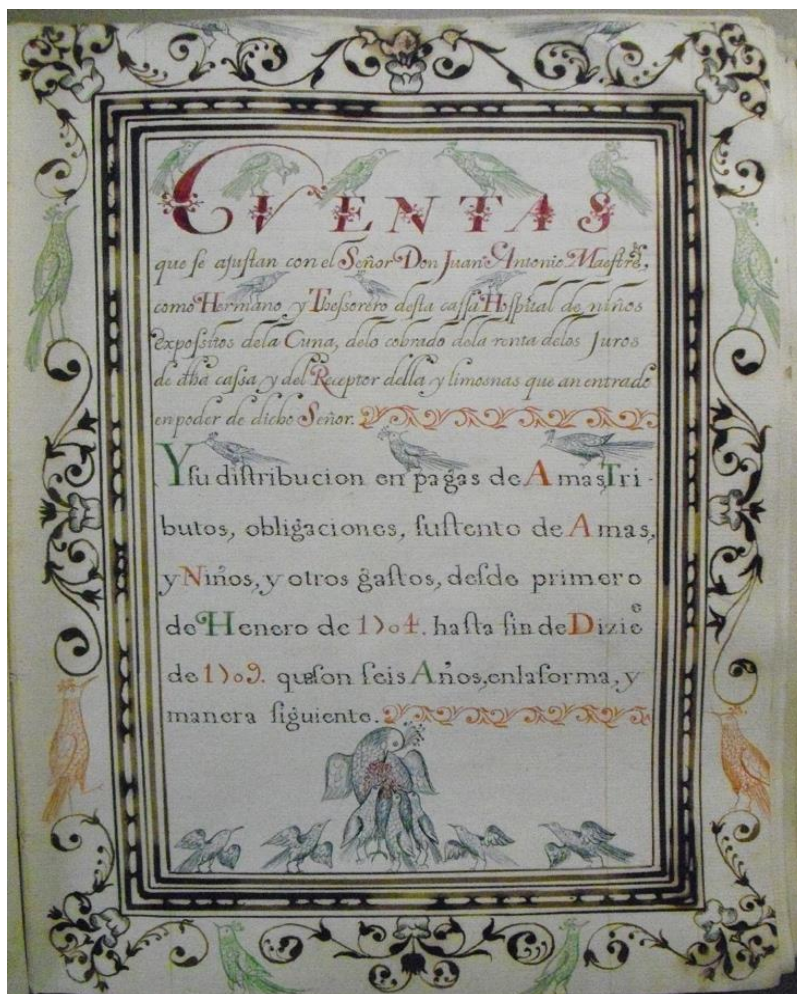 CVENTAS
que se ajustan con el Señor Don Juan Antonio Maestre,
como Hermano y Thessorero desta cassa Hospital de niños
expositos dela Cuna, delo cobrado dela renta delos Juros
de dha cassa y del Receptor della y limosnas que an entrado
en poder de dicho Señor.
Y su distribucion en pagas de Amas, Tri-
butos, obligaciones, sustento de Amas,
y Niños, y otros gastos, desde primero
de Henero de 1704. hasta fin de Dizie
de 1709. que son seis Años, en la forma, y
manera siguiente.